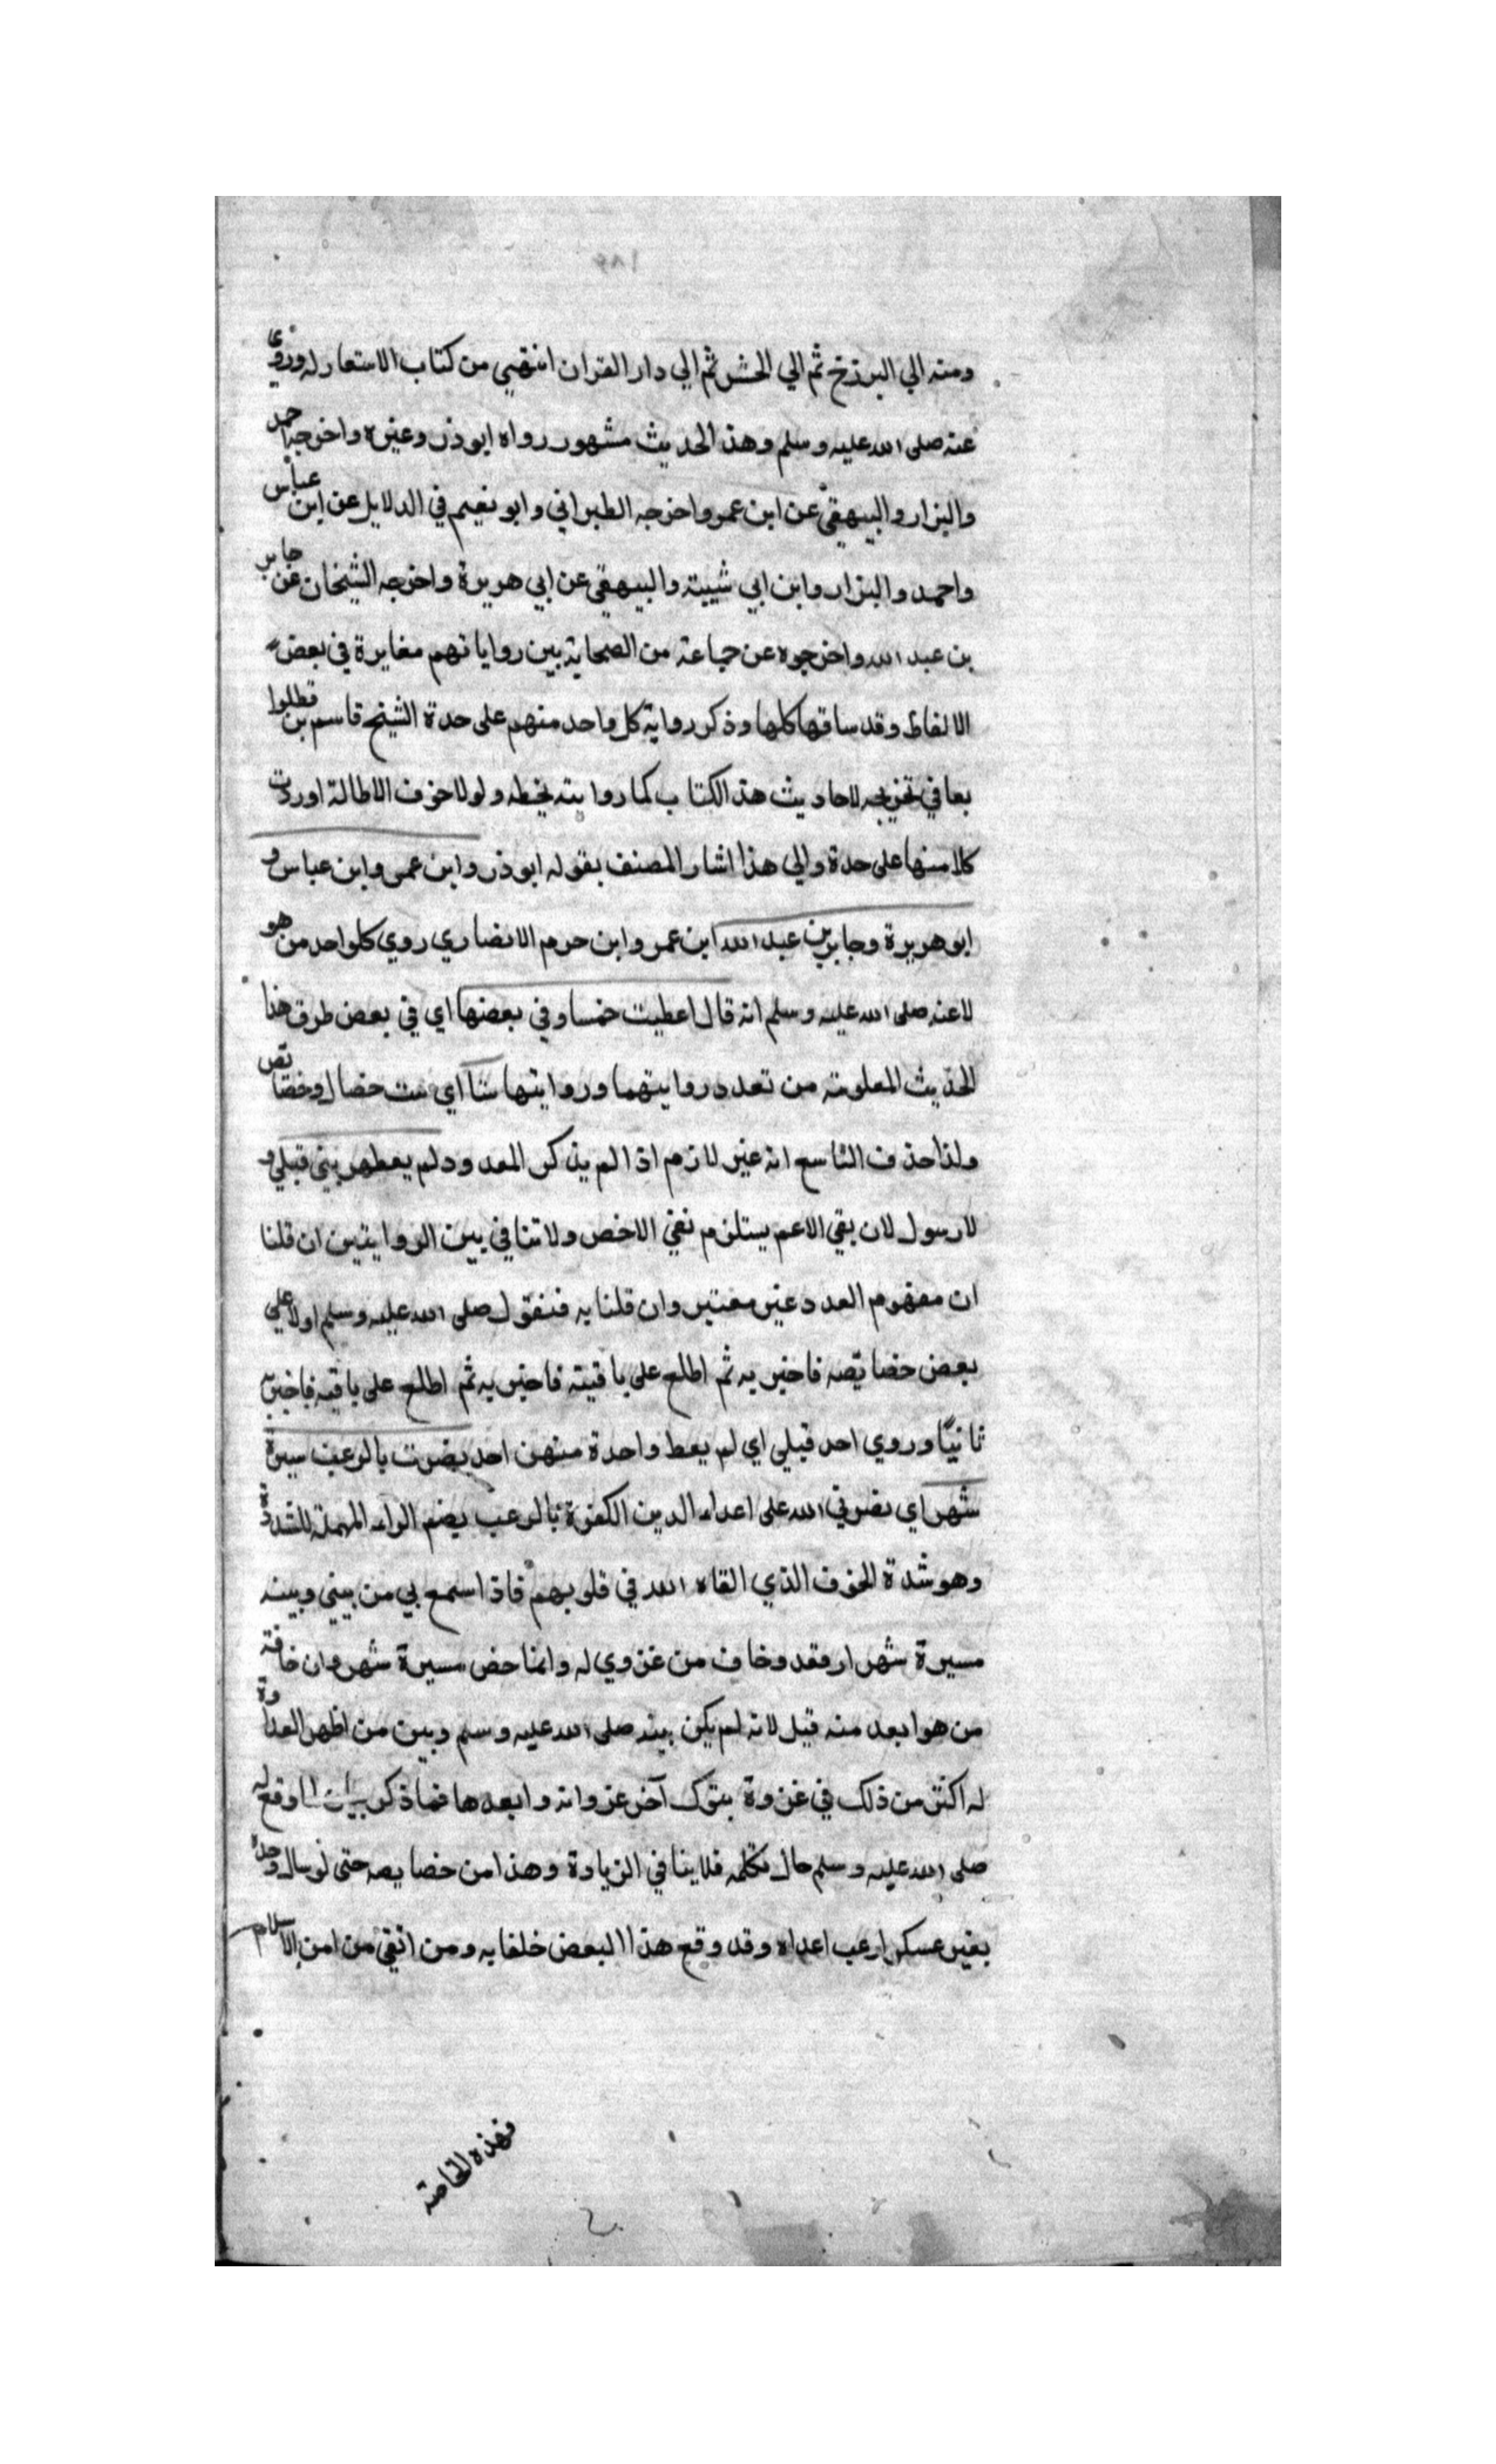 ومنه الي البرزخ ثم الي الحشر ثم الي دار القران انتهي من كتاب الاستعار له وروي
عنه صلى الله عليه وسلم وهذا الحديث مشهور رواه ابو ذر وغيره واخرجه احمد
والبزار والبيهقي عن ابن عمر واخرجه الطبراني وابو نعيم في الدلايل عن ابن عباس
واحمد والبزار وابن ابي شيبة والبيهقي عن ابي هريرة واخرجه الشيخان عن جابر
بن عبد الله واخرجوه عن جماعة من الصحابة بين رواياتهم مغايرة في بعض
الالفاظ وقد ساقها كلها وذكر رواية كل واحد منهم على حدة الشيخ قاسم بن قطلوا
بعا في تخريجه لاحاديث هذا الكتاب كما روايته بخطه ولولا خوف الاطالة اوردت
كلا منها على حدة والي هذا اشار المصنف بقوله ابو ذر وابن عمر وابن عباس و
ابو هريرة وجابر بن عبد الله ابن عمر وابن حرم الانصاري روي كلواحد من هو
لا عنه صلى الله عليه وسلم انه قال اعطيت خمسا وفي بعضها اي في بعض طرق هذا
الحديث المعلومة من تعدد روايتهما وروايتها ستا اي ست خصال وخصائص
ولذا حذف التا سع انه غير لازم اذا لم يذكر المعدود لم يعطهن نبي قبلي و
لا رسول لان بقي الاعم يستلزم نفي الاخص ولا تنافي بين الروايتين ان قلنا
ان مفهوم العدد غير معتبر وان قلنا به فنقول صلى الله عليه وسلم اولا علي
بعض خصائصه فاخبر به ثم اطلع على باقيته فاخبر به ثم اطلع على باقيه فاخبر به
ثانيًا وروي احد قبلي اي لم يعط واحدة منهن احد بضرت بالرعب مسيرة
شهر اي نصرني الله على اعداء الدين الكفرة بالرعب بضم الراء المهملة المشددة
وهو شدة الخوف الذي القاه الله في قلوبهم فاذا سمع بي من بيني وبينه
مسيرة شهر ارفقد وخاف من غزوي له وانما خص مسيرة شهر وان خافه
من هو ابعد منه قيل لانه لم يكن بينه صلى الله عليه وسلم وبين من اظهر العداوة
له اكثر من ذلك في غزوة بتوك آخر غزواته وابعدها فما ذكر بيان لما وقع له
صلى الله عليه وسلم حال تكلمه فلا ينافي الزيادة وهذا من خصايصه حتى لو سال وحده
بغير عسكر ارعب اعداه وقد وقع هذا البعض خلفايه ومن اتقي من امن الاسلام
وهذه الخاصة